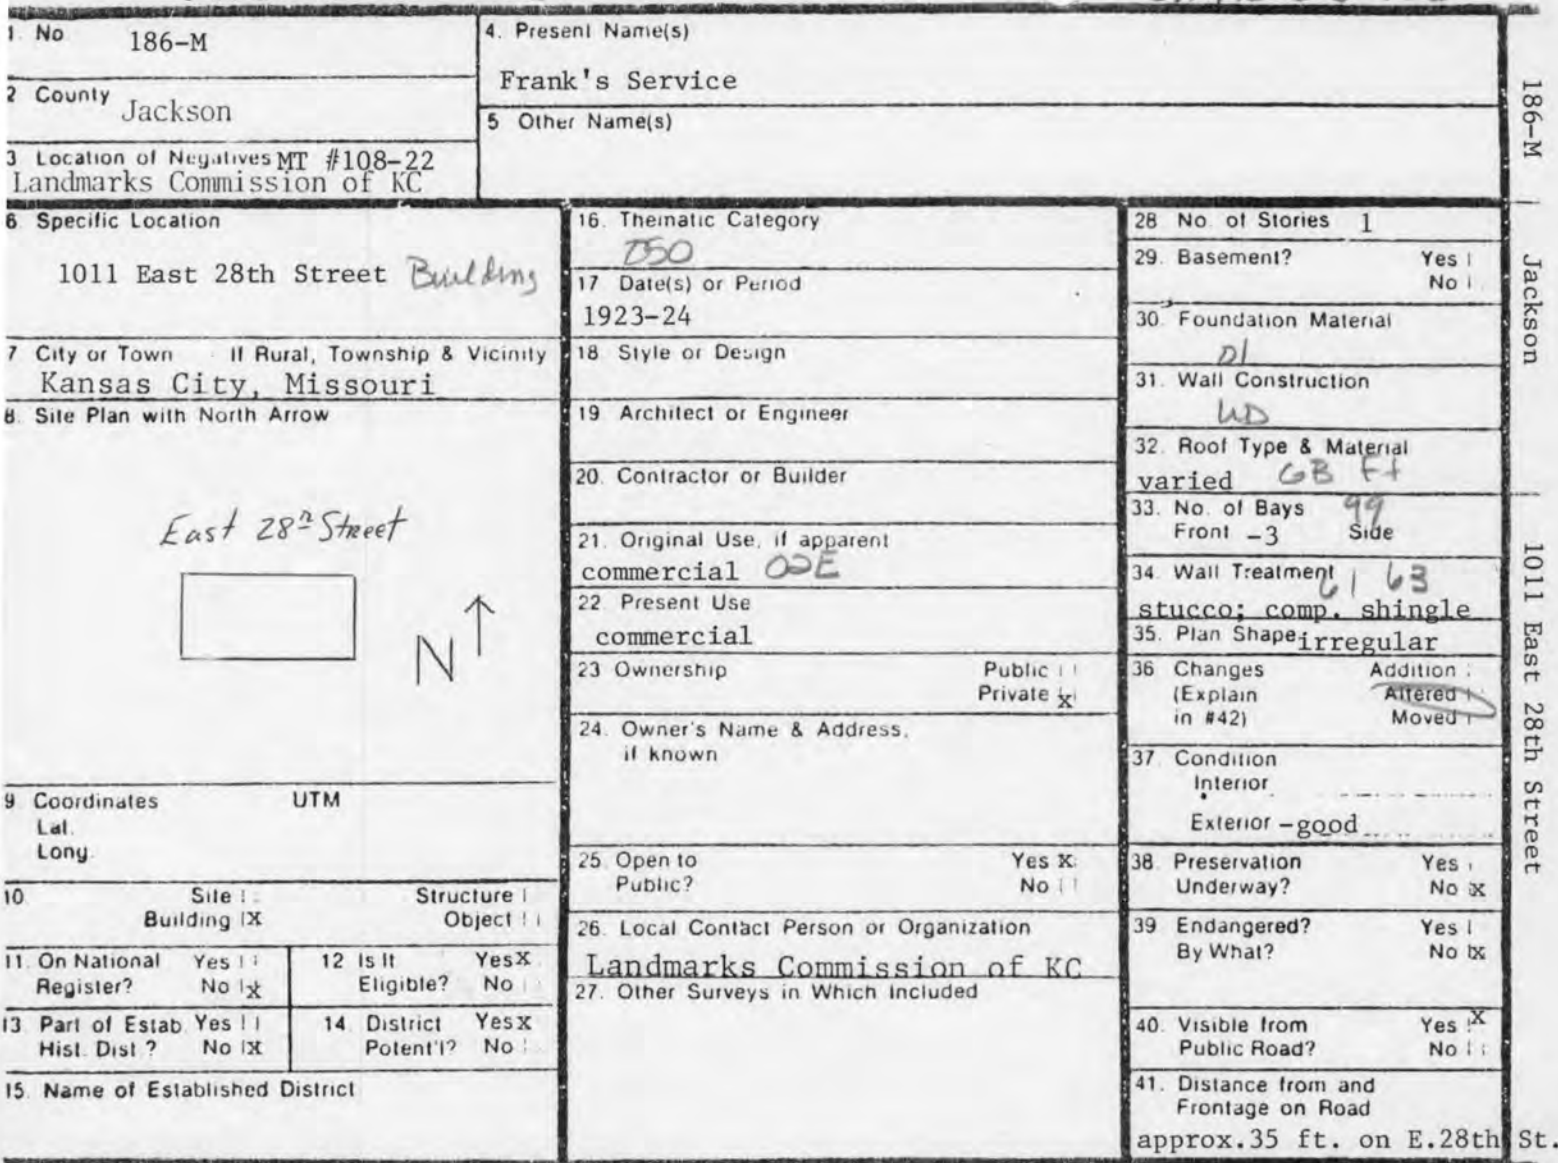 1. No 186-M
2 County Jackson
3 Location of Negatives MT #108-22
Landmarks Commission of KC
4. Present Name(s)
Frank's Service
5 Other Name(s)
6 Specific Location
1011 East 28th Street Building
7 City or Town If Rural, Township & Vicinity
Kansas City, Missouri
8. Site Plan with North Arrow
East 28th Street
N
9 Coordinates UTM
Lat.
Long.
10 Site Structure
Building X Object
11. On National Yes
Register? No X
12 Is It Yes X
Eligible? No
13 Part of Estab Yes
Hist. Dist.? No X
14. District Yes X
Potent'l? No
15. Name of Established District
16. Thematic Category
D50
17 Date(s) or Period
1923-24
18. Style or Design
19. Architect or Engineer
20. Contractor or Builder
21. Original Use, if apparent
commercial 02E
22. Present Use
commercial
23 Ownership Public
Private X
24. Owner's Name & Address,
if known
25. Open to Yes X
Public? No
26. Local Contact Person or Organization
Landmarks Commission of KC
27. Other Surveys in Which Included
28 No. of Stories 1
29. Basement? Yes
No
30. Foundation Material
31. Wall Construction
WD
32. Roof Type & Material
varied GB Ft
33. No. of Bays 99
Front -3 Side
34. Wall Treatment 61 63
stucco; comp. shingle
35. Plan Shape irregular
36 Changes Addition
(Explain Altered
in #42) Moved
37. Condition
Interior
Exterior -good
38. Preservation Yes
Underway? No X
39 Endangered? Yes
By What? No X
40. Visible from Yes X
Public Road? No
41. Distance from and
Frontage on Road
approx.35 ft. on E.28th St.
186-M
Jackson
1011 East 28th Street